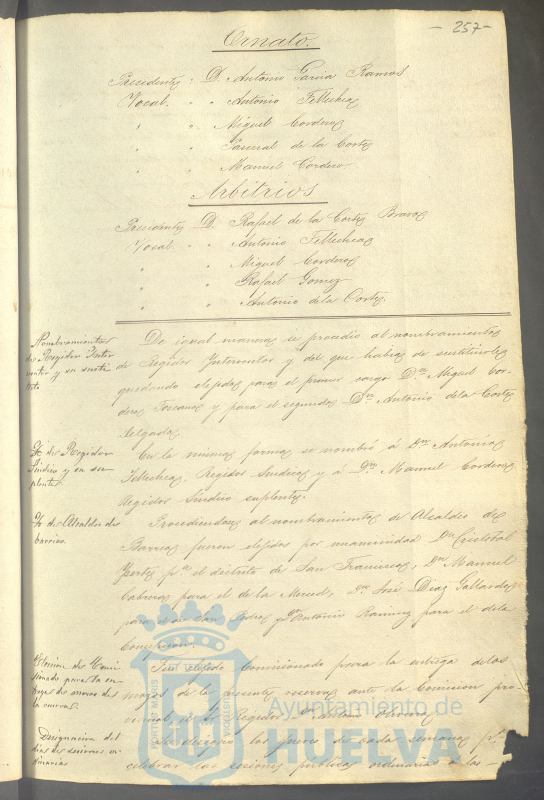 - 257 -
Ornato.
Presidente D. Antonio Garcia Ramos
Vocal " " Antonio Tellechea
" " Miguel Cordero
" " Pascual de la Corte
" " Manuel Cordero.
Arbitrios
Presidente D. Rafael de la Corte Bravo
Vocal " " Antonio Tellechea
" " Miguel Cordero
" " Rafael Gomez
" " Antonio dela Corte.
Nombramiento
de Regidor Inter
ventor y su susti
tuto
De igual manera se procedió al nombramiento
de Regidor Interventor y del que habia de sustituirle
quedando elejidos para el primer cargo Dn. Miguel Cor
dero Toscano y para el segundo Dn. Antonio dela Corte
Delgado.
Yd. de Regidor
Sindico y su su
plente
En la misma forma se nombró á Dn. Antonio
Tellechea, Regidor Sindico y á Dn. Manuel Cordero,
Regidor Sindico suplente.
Yd. de Alcaldes de
barrios
Procediendose al nombramiento de Alcaldes de
Barrio fueron elejidos por unanimidad Dn. Cristobal
pa. el distrito de San Francisco, Dn. Manuel
Cabrera para el de la Merced, Dn. José Diaz Gallardo
para el de San Pedro y Dn. Antonio Ramirez para el dela
Concepcion.
Eleccion de Comi
sionado para la en
trega de mozos de
la reserva.
Fué elejido Comisionado para la entrega de los
mozos de la presente reserva ante la Comision pro
vincial, el Sr. Regidor D. Antonio Oliveira
Designacion del
dia de sesiones or
dinarias
Se designó los jueves de cada semana pa.
celebrar las sesiones publicas ordinarias a las
PORTUS MARIS
CUSTODIA
Ayuntamiento de
HUELVA